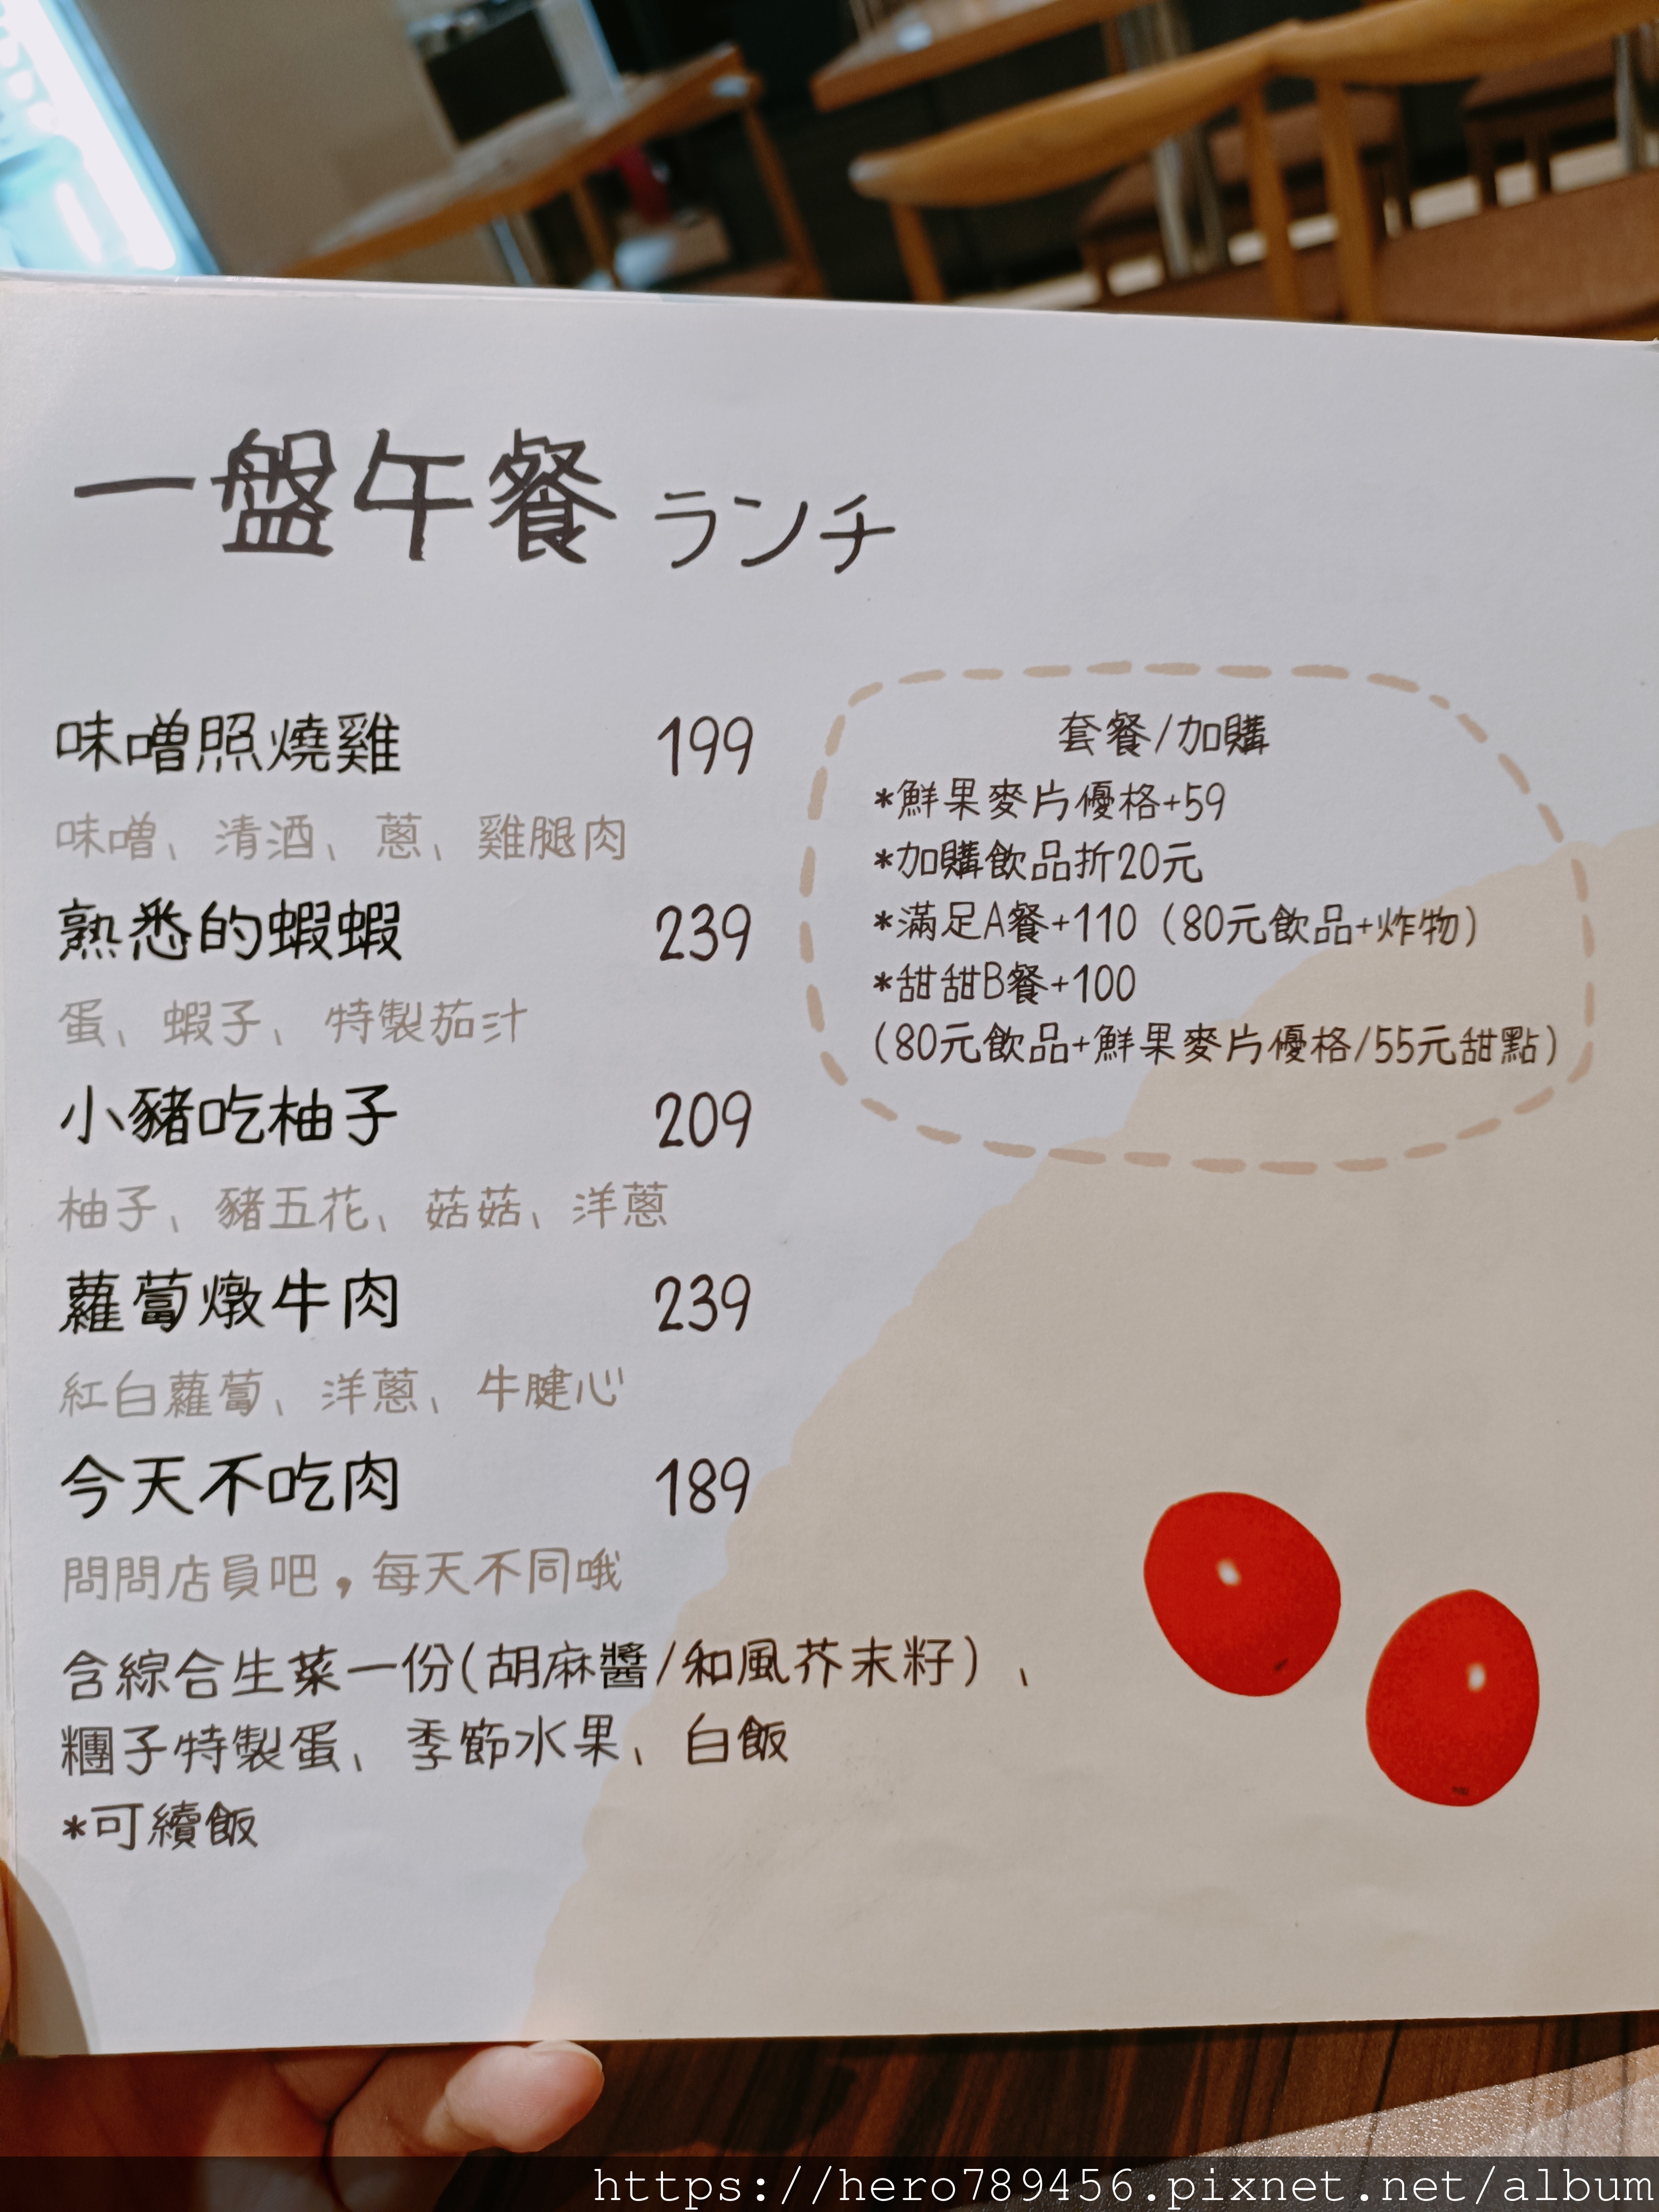 一盤午餐 ランチ
味噌照燒雞 199
味噌、清酒、蔥、雞腿肉
熟悉的蝦蝦 239
蛋、蝦子、特製茄汁
小豬吃柚子 209
柚子、豬五花、菇菇、洋蔥
蘿蔔燉牛肉 239
紅白蘿蔔、洋蔥、牛腱心
今天不吃肉 189
問問店員吧，每天不同哦
含綜合生菜一份(胡麻醬/和風芥末籽)、
糰子特製蛋、季節水果、白飯
*可續飯
套餐/加購
*鮮果麥片優格+59
*加購飲品折20元
*滿足A餐+110（80元飲品+炸物）
*甜甜B餐+100
（80元飲品+鮮果麥片優格/55元甜點）
https://hero789456.pixnet.net/album